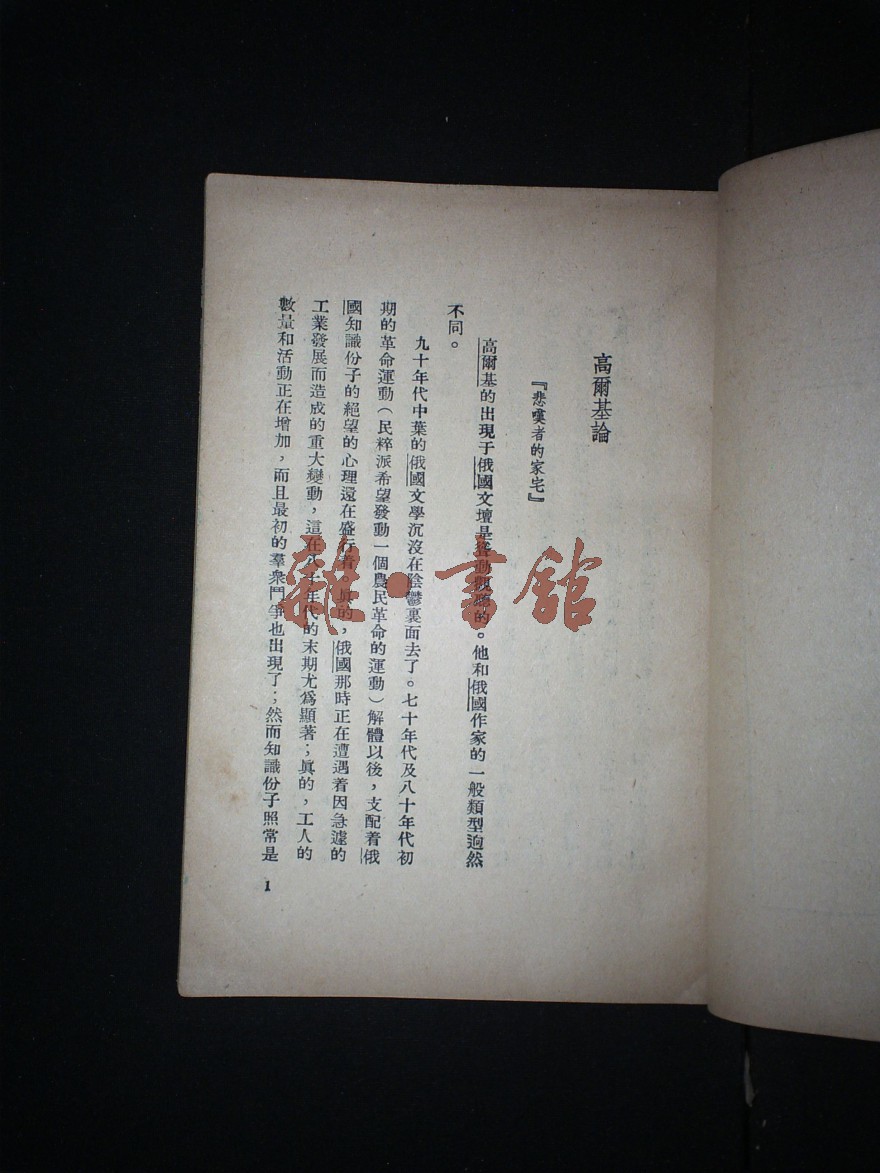 高爾基論
『悲嘆者的家宅』
高爾基的出現于俄國文壇是聳動觀聽的。他和俄國作家的一般類型逈然
不同。
九十年代中葉的俄國文學沉沒在陰鬱裏面去了。七十年代及八十年代初
期的革命運動（民粹派希望發動一個農民革命的運動）解體以後，支配着俄
國知識份子的絕望的心理還在盛行着。眞的，俄國那時正在遭遇着因急遽的
工業發展而造成的重大變動，這在八十年代的末期尤爲顯著；眞的，工人的
數量和活動正在增加，而且最初的羣衆鬥爭也出現了；然而知識份子照常是
1
雜·書館